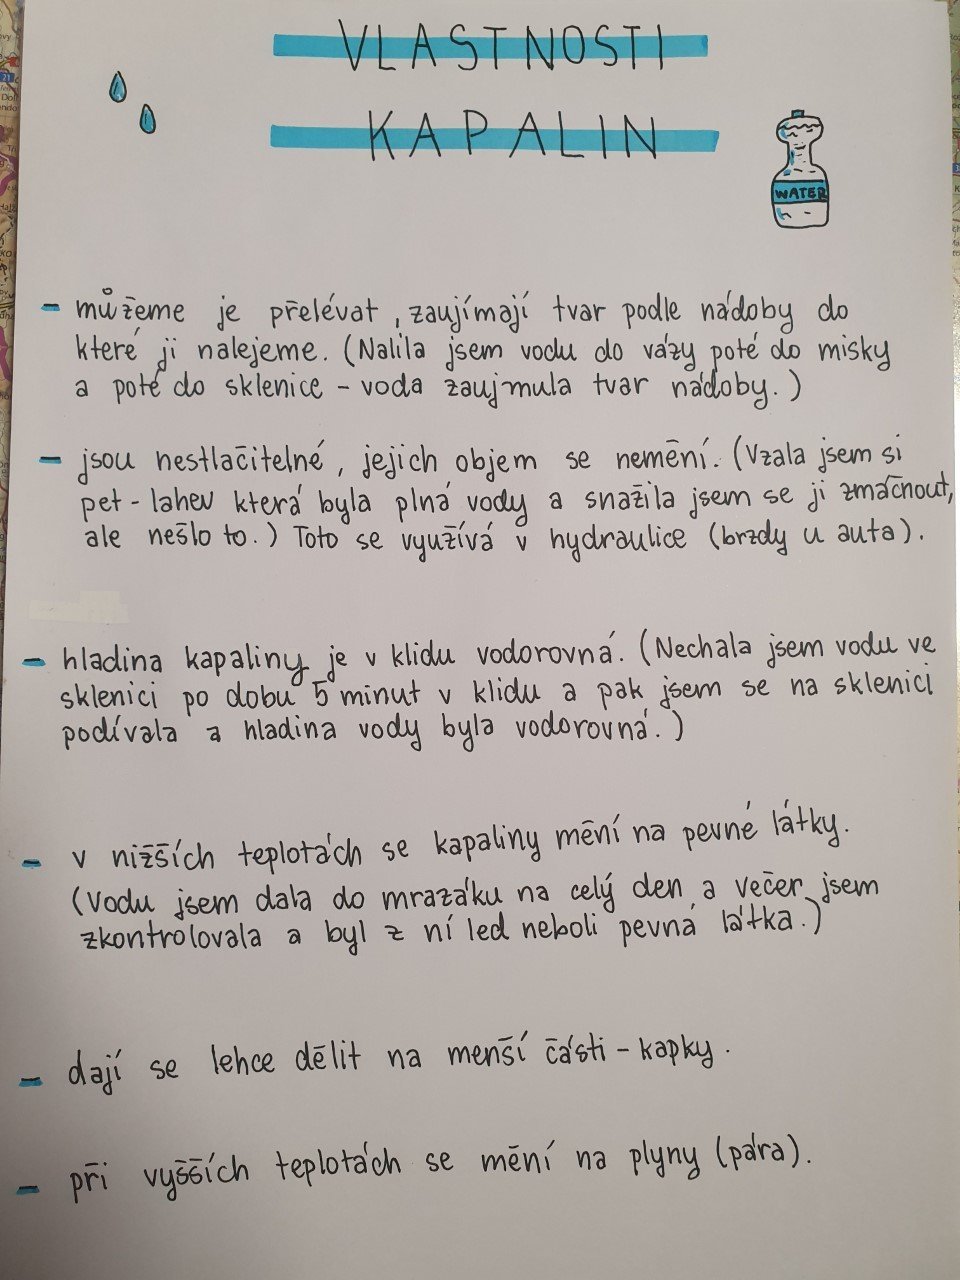 VLASTNOSTI
KAPALIN
WATER
- můžeme je přelévat, zaujímají tvar podle nádoby do
které ji nalejeme. (Nalila jsem vodu do vázy poté do misky
a poté do sklenice - voda zaujmula tvar nádoby.)
- jsou nestlačitelné, jejich objem se nemění. (Vzala jsem si
pet-lahev která byla plná vody a snažila jsem se ji zmáčnout,
ale nešlo to.) Toto se využívá v hydraulice (brzdy u auta).
- hladina kapaliny je v klidu vodorovná. (Nechala jsem vodu ve
sklenici po dobu 5 minut v klidu a pak jsem se na sklenici
podívala a hladina vody byla vodorovná.)
- v nižších teplotách se kapaliny mění na pevné látky.
(Vodu jsem dala do mrazáku na celý den a večer jsem
zkontrolovala a byl z ní led neboli pevná látka.)
- dají se lehce dělit na menší části - kapky.
- při vyšších teplotách se mění na plyny (pára).